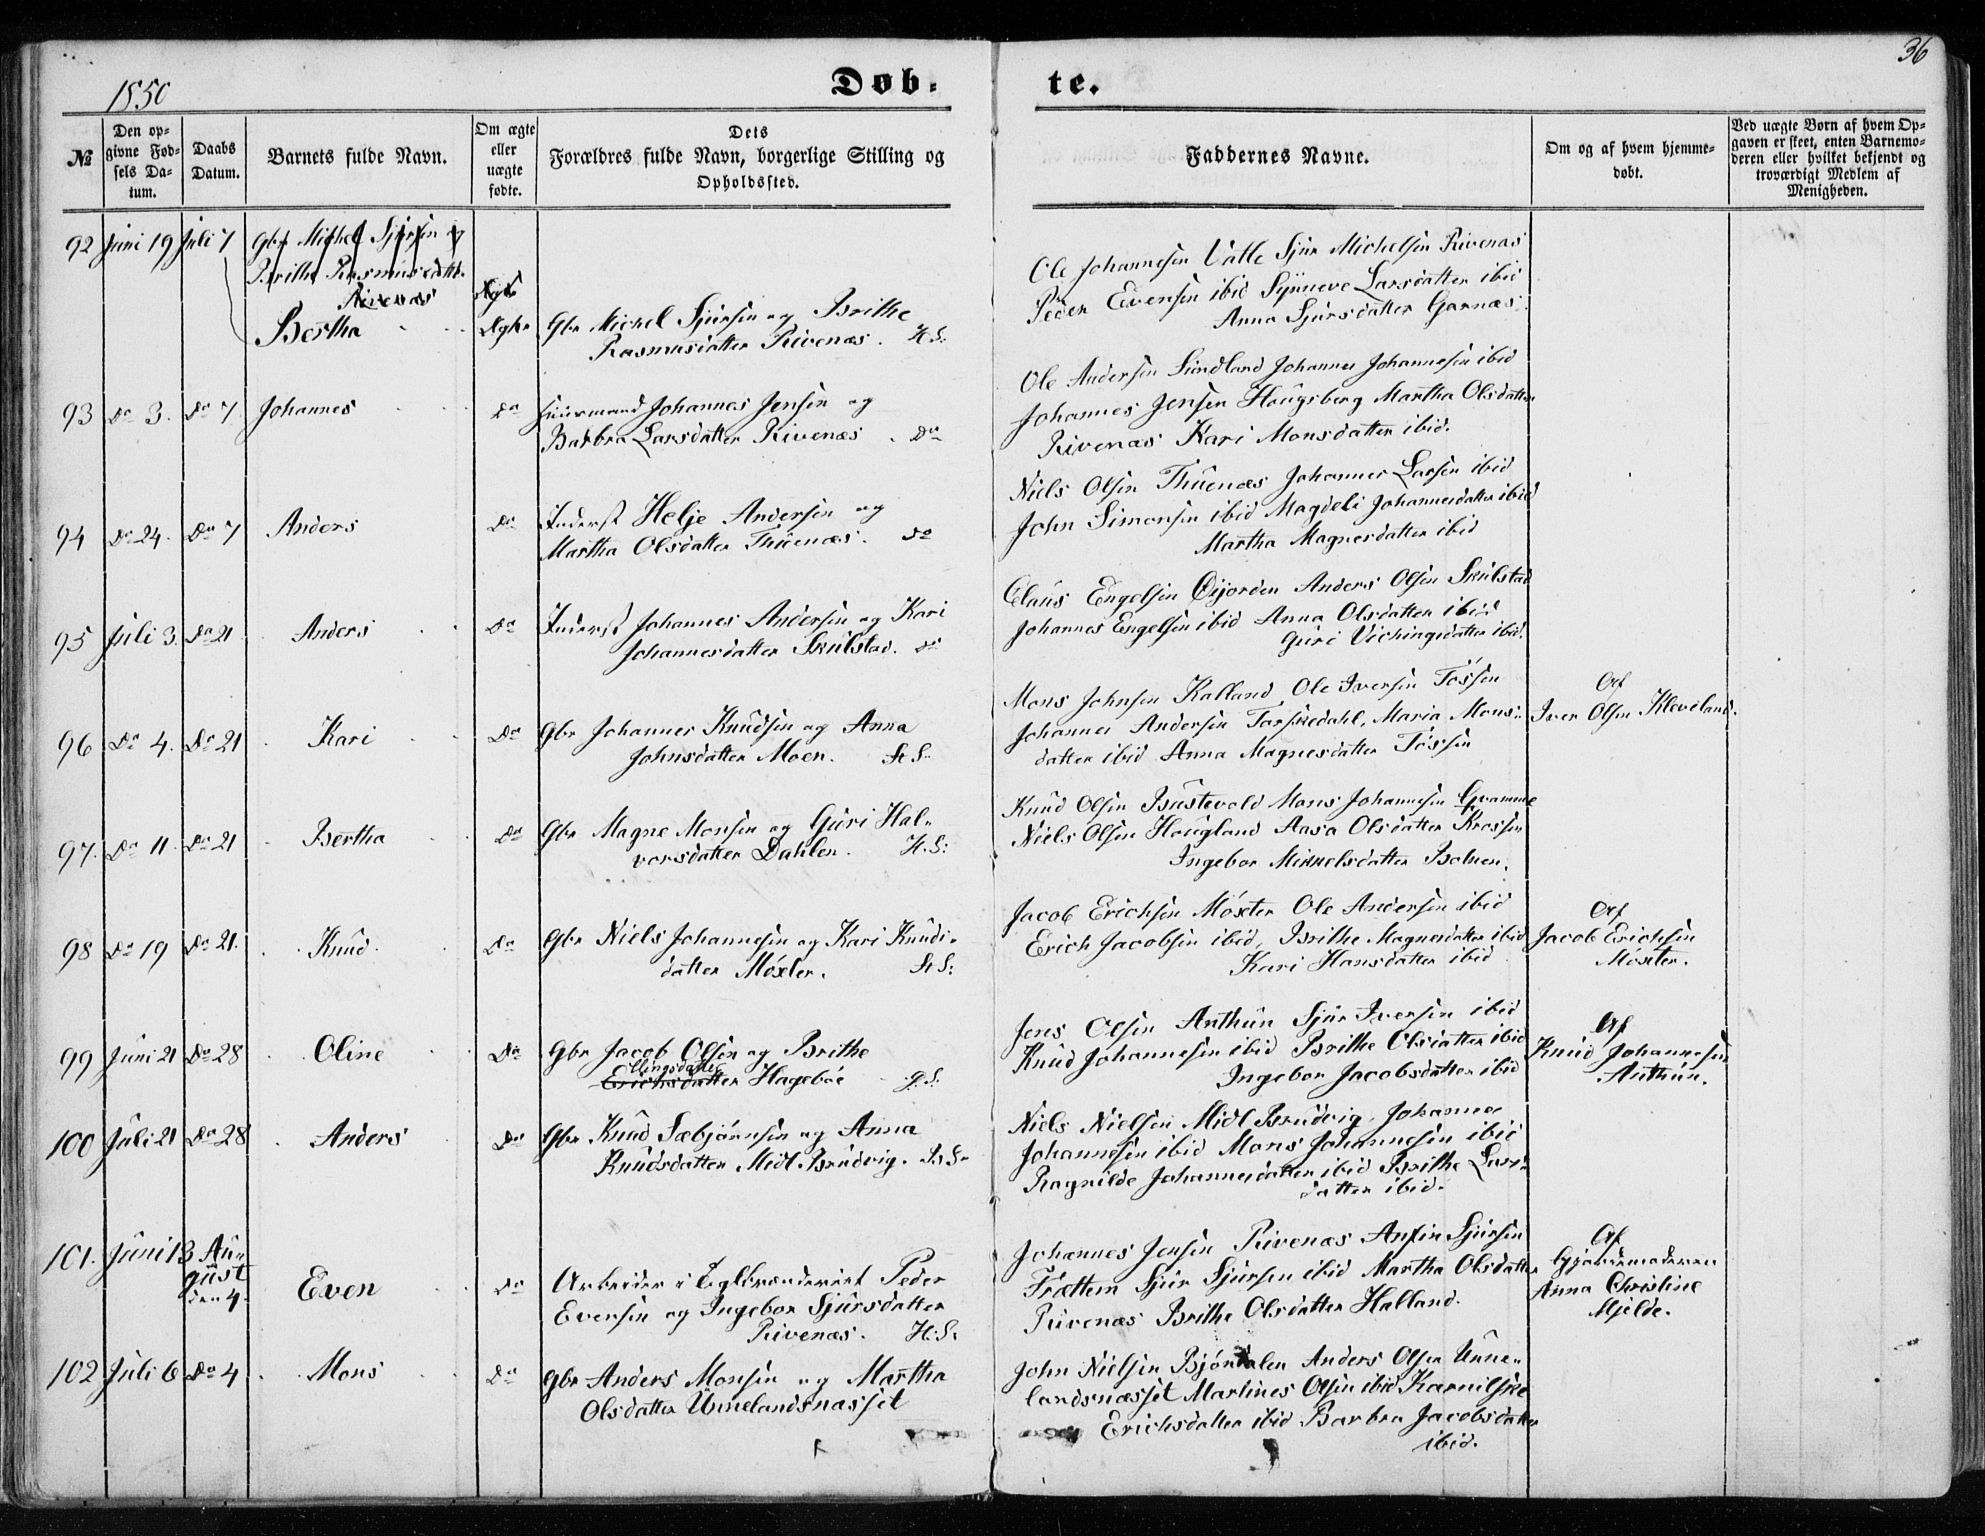 36
1850
Døb-
te.
№
Den op-
givne Fød-
sels Da-
tum.
Daabs
Datum.
Barnets fulde Navn.
Om ægte
eller
uægte
fødte.
Dets
Forældres fulde Navn, borgerlige Stilling og
Opholdssted.
Faddernes Navne.
Om og af hvem hjemme-
døbt.
Ved uægte Børn af hvem Op-
gaven er skeet, enten Barnemo-
deren eller hvilket bekjendt og
troværdigt Medlem af
Menigheden.
92 Juni 19 Juli 7
Gbr Michel Sjursen og
Brithe Rasmusdatter
Rivenæs
Bertha
Ægte
Ægte
Gbr Michel Sjursen og Brithe
Rasmusdatter Rivenæs. H.S.
Ole Johannesen Valle Sjur Michelsen Rivenæs
Peder Evensen ibid Synneve Larsdatter ibid
Anna Sjursdatter Garnæs.
93 Do 3. Do 7 Johannes Do
Huusmand Johannes Jensen og
Barbra Larsdatter Rivenæs. Do
Ole Andersen Sundland Johannes Johannesen ibid
Johannes Jensen Hougsberg Martha Olsdatter
Rivenæs Kari Monsdatter ibid.
94 Do 24. Do 7 Anders Do
Inderst Helje Andersen og
Martha Olsdatter Thuenæs. Do
Niels Olsen Thuenæs Johannes Larsen ibid
John Simonsen ibid Magdeli Johannesdatter ibid
Martha Magnesdatter ibid
95 Juli 3. Do 21 Anders Do
Inderst Johannes Andersen og Kari
Johannesdatter Skulstad. Do
Claus Engelsen Øijorden Anders Olsen Skulstad
Johannes Engelsen ibid Anna Olsdatter ibid
Guri Vichingsdatter ibid.
96 Do 4. Do 21 Kari Do
Gbr Johannes Knudsen og Anna
Johnsdatter Moen. H.S.
Mons Johnsen Kalland Ole Iversen Tøssen
Johannes Andersen Tarskedahl, Maria Mons-
datter ibid Anna Magnesdatter Tøssen
Af
Iver Olsen Kleveland.
97. Do 11. Do 21 Bertha Do
Gbr Magne Monsen og Guri Hal-
vorsdatter Dahlen. H.S.
Knud Olsen Bustevold Mons Johannesen Gramme
Niels Olsen Hougland Aasa Olsdatter Krossen
Ingebor Mikkelsdatter
98 Do 19 Do 21. Knud Do
Gbr Niels Johannesen og Kari Knuds-
datter Møxter. H.S.
Jacob Erichsen Møxter Ole Andersen ibid
Erich Jacobsen ibid, Brithe Magnesdatter ibid
Kari Hansdatter ibid
Af
Jacob Erichsen
Møxter.
99 Juni 21 Do 28 Oline Do
Gbr Jacob Olsen og Brithe
Erichsdatter Hagebøe G.S.
Jens Olsen Anthun Sjur Iversen ibid
Knud Johannesen ibid Brithe Olsdatter ibid
Ingebor Jacobsdatter ibid
Af
Knud Johannesen
Anthun.
100 Juli 21 Do 28 Anders Do
Gbr Knud Sæbjørnsen og Anna
Knudsdatter Midt Brudvig. B.S.
Niels Nielsen Midt Brudvig. Johannes
Johannesen ibid Mons Johannesen ibid
Ragnilde Johannesdatter ibid Brithe Lars-
datter ibid.
101. Juni 13 Au-
gust
den 4. Even Do
Arbeider i Teglbrænderiet Peder
Evensen og Ingebor Sjursdatter
Rivenæs. H.S.
Johannes Jensen Rivenæs Anfin Sjursen
Trættem Sjur Sjursen ibid Martha Olsdatter
Rivenæs Brithe Olsdatter Halland.
Af
Gjordemoderen
Anna Christine
Mjelde.
102 Juli 6 Do 4 Mons Do
Gbr Anders Monsen og Martha
Olsdatter Unnelandsnæsset
John Nielsen Bjøndalen Anders Olsen Unne-
landsnæsset Martines Olsen ibid Karnilske
Erichsdatter ibid Barbra Jacobsdatter
ibid.